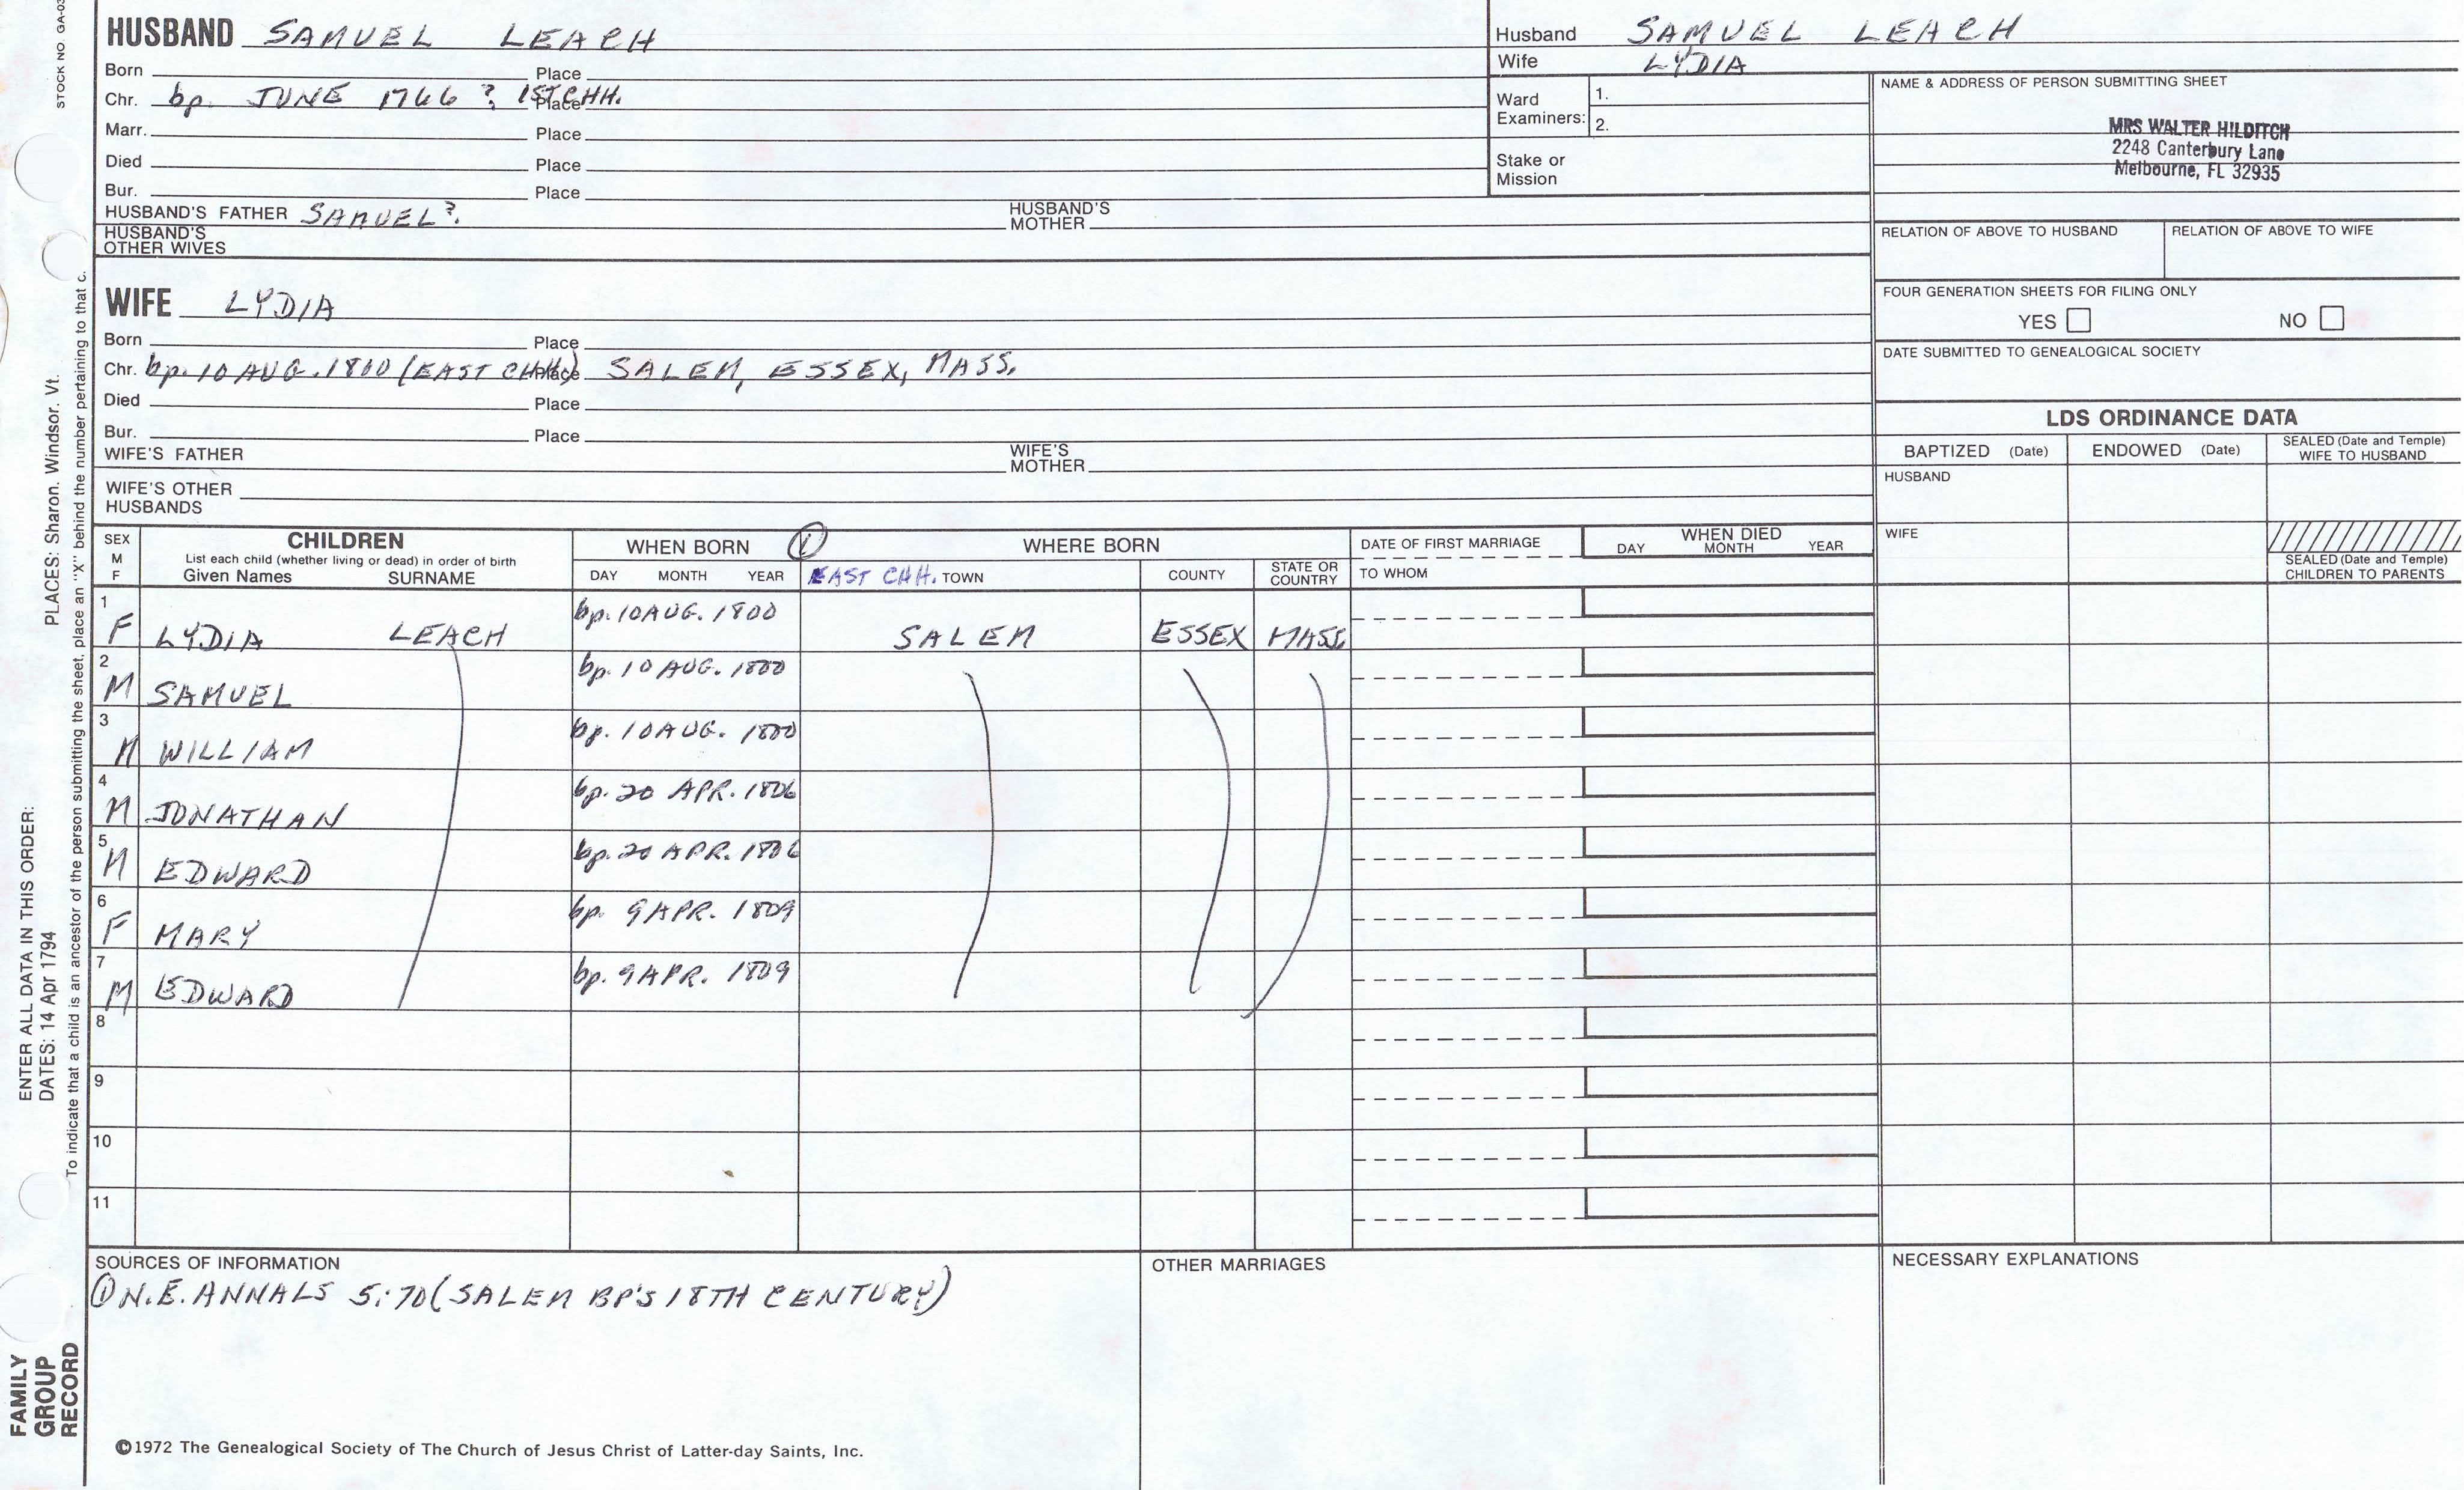 STOCK NO. GA-03
HUSBAND SAMUEL LEACH
Born Place
Chr. bp. JUNE 1766 ? 1ST CHH. Place
Marr. Place
Died Place
Bur. Place
HUSBAND'S FATHER SAMUEL? HUSBAND'S MOTHER
HUSBAND'S OTHER WIVES
Husband SAMUEL LEACH
Wife LYDIA
Ward Examiners: 1.
2.
Stake or Mission
NAME & ADDRESS OF PERSON SUBMITTING SHEET
MRS WALTER HILDITCH
2248 Canterbury Lane
Melbourne, FL 32935
RELATION OF ABOVE TO HUSBAND RELATION OF ABOVE TO WIFE
FOUR GENERATION SHEETS FOR FILING ONLY
YES NO
DATE SUBMITTED TO GENEALOGICAL SOCIETY
WIFE LYDIA
Born Place
Chr. bp. 10 AUG. 1800 (EAST CHH.) Place SALEM, ESSEX, MASS.
Died Place
Bur. Place
WIFE'S FATHER WIFE'S MOTHER
WIFE'S OTHER HUSBANDS
LDS ORDINANCE DATA
BAPTIZED (Date) ENDOWED (Date) SEALED (Date and Temple) WIFE TO HUSBAND
HUSBAND
WIFE
SEALED (Date and Temple) CHILDREN TO PARENTS
SEX M F
CHILDREN
List each child (whether living or dead) in order of birth
Given Names SURNAME
WHEN BORN ①
DAY MONTH YEAR
WHERE BORN
EAST CHH. TOWN COUNTY STATE OR COUNTRY
DATE OF FIRST MARRIAGE
TO WHOM
WHEN DIED
DAY MONTH YEAR
1 F LYDIA LEACH bp. 10 AUG. 1800 SALEM ESSEX MASS
2 M SAMUEL bp. 10 AUG. 1800
3 M WILLIAM bp. 10 AUG. 1800
4 M JONATHAN bp. 20 APR. 1806
5 M EDWARD bp. 20 APR. 1806
6 F MARY bp. 9 APR. 1809
7 M EDWARD bp. 9 APR. 1809
8
9
10
11
SOURCES OF INFORMATION
① N.E. ANNALS 5:70 (SALEM BP'S 18TH CENTURY)
OTHER MARRIAGES
NECESSARY EXPLANATIONS
©1972 The Genealogical Society of The Church of Jesus Christ of Latter-day Saints, Inc.
FAMILY
GROUP
RECORD
ENTER ALL DATA IN THIS ORDER:
DATES: 14 Apr 1794 PLACES: Sharon. Windsor. Vt.
To indicate that a child is an ancestor of the person submitting the sheet, place an "X" behind the number pertaining to that c.